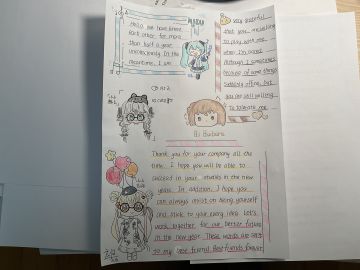 Hello, we have known
each other for more
than half a year
unconsciously. In the
meantime, I am
very grateful
that you are willing
to play with me
when I'm bored.
Although I sometimes
because of some things
Suddenly offline, but
you are still willing
to tolerate me.
Thank you for your company all the
time. I hope you will be able to
succeed in your studies in the new
years. In addition, I hope you
can always insist on being yourself
and stick to your every idea. Let's
work together for our better future
in the new year. These words are sent
to my best friend. Best friends forever.